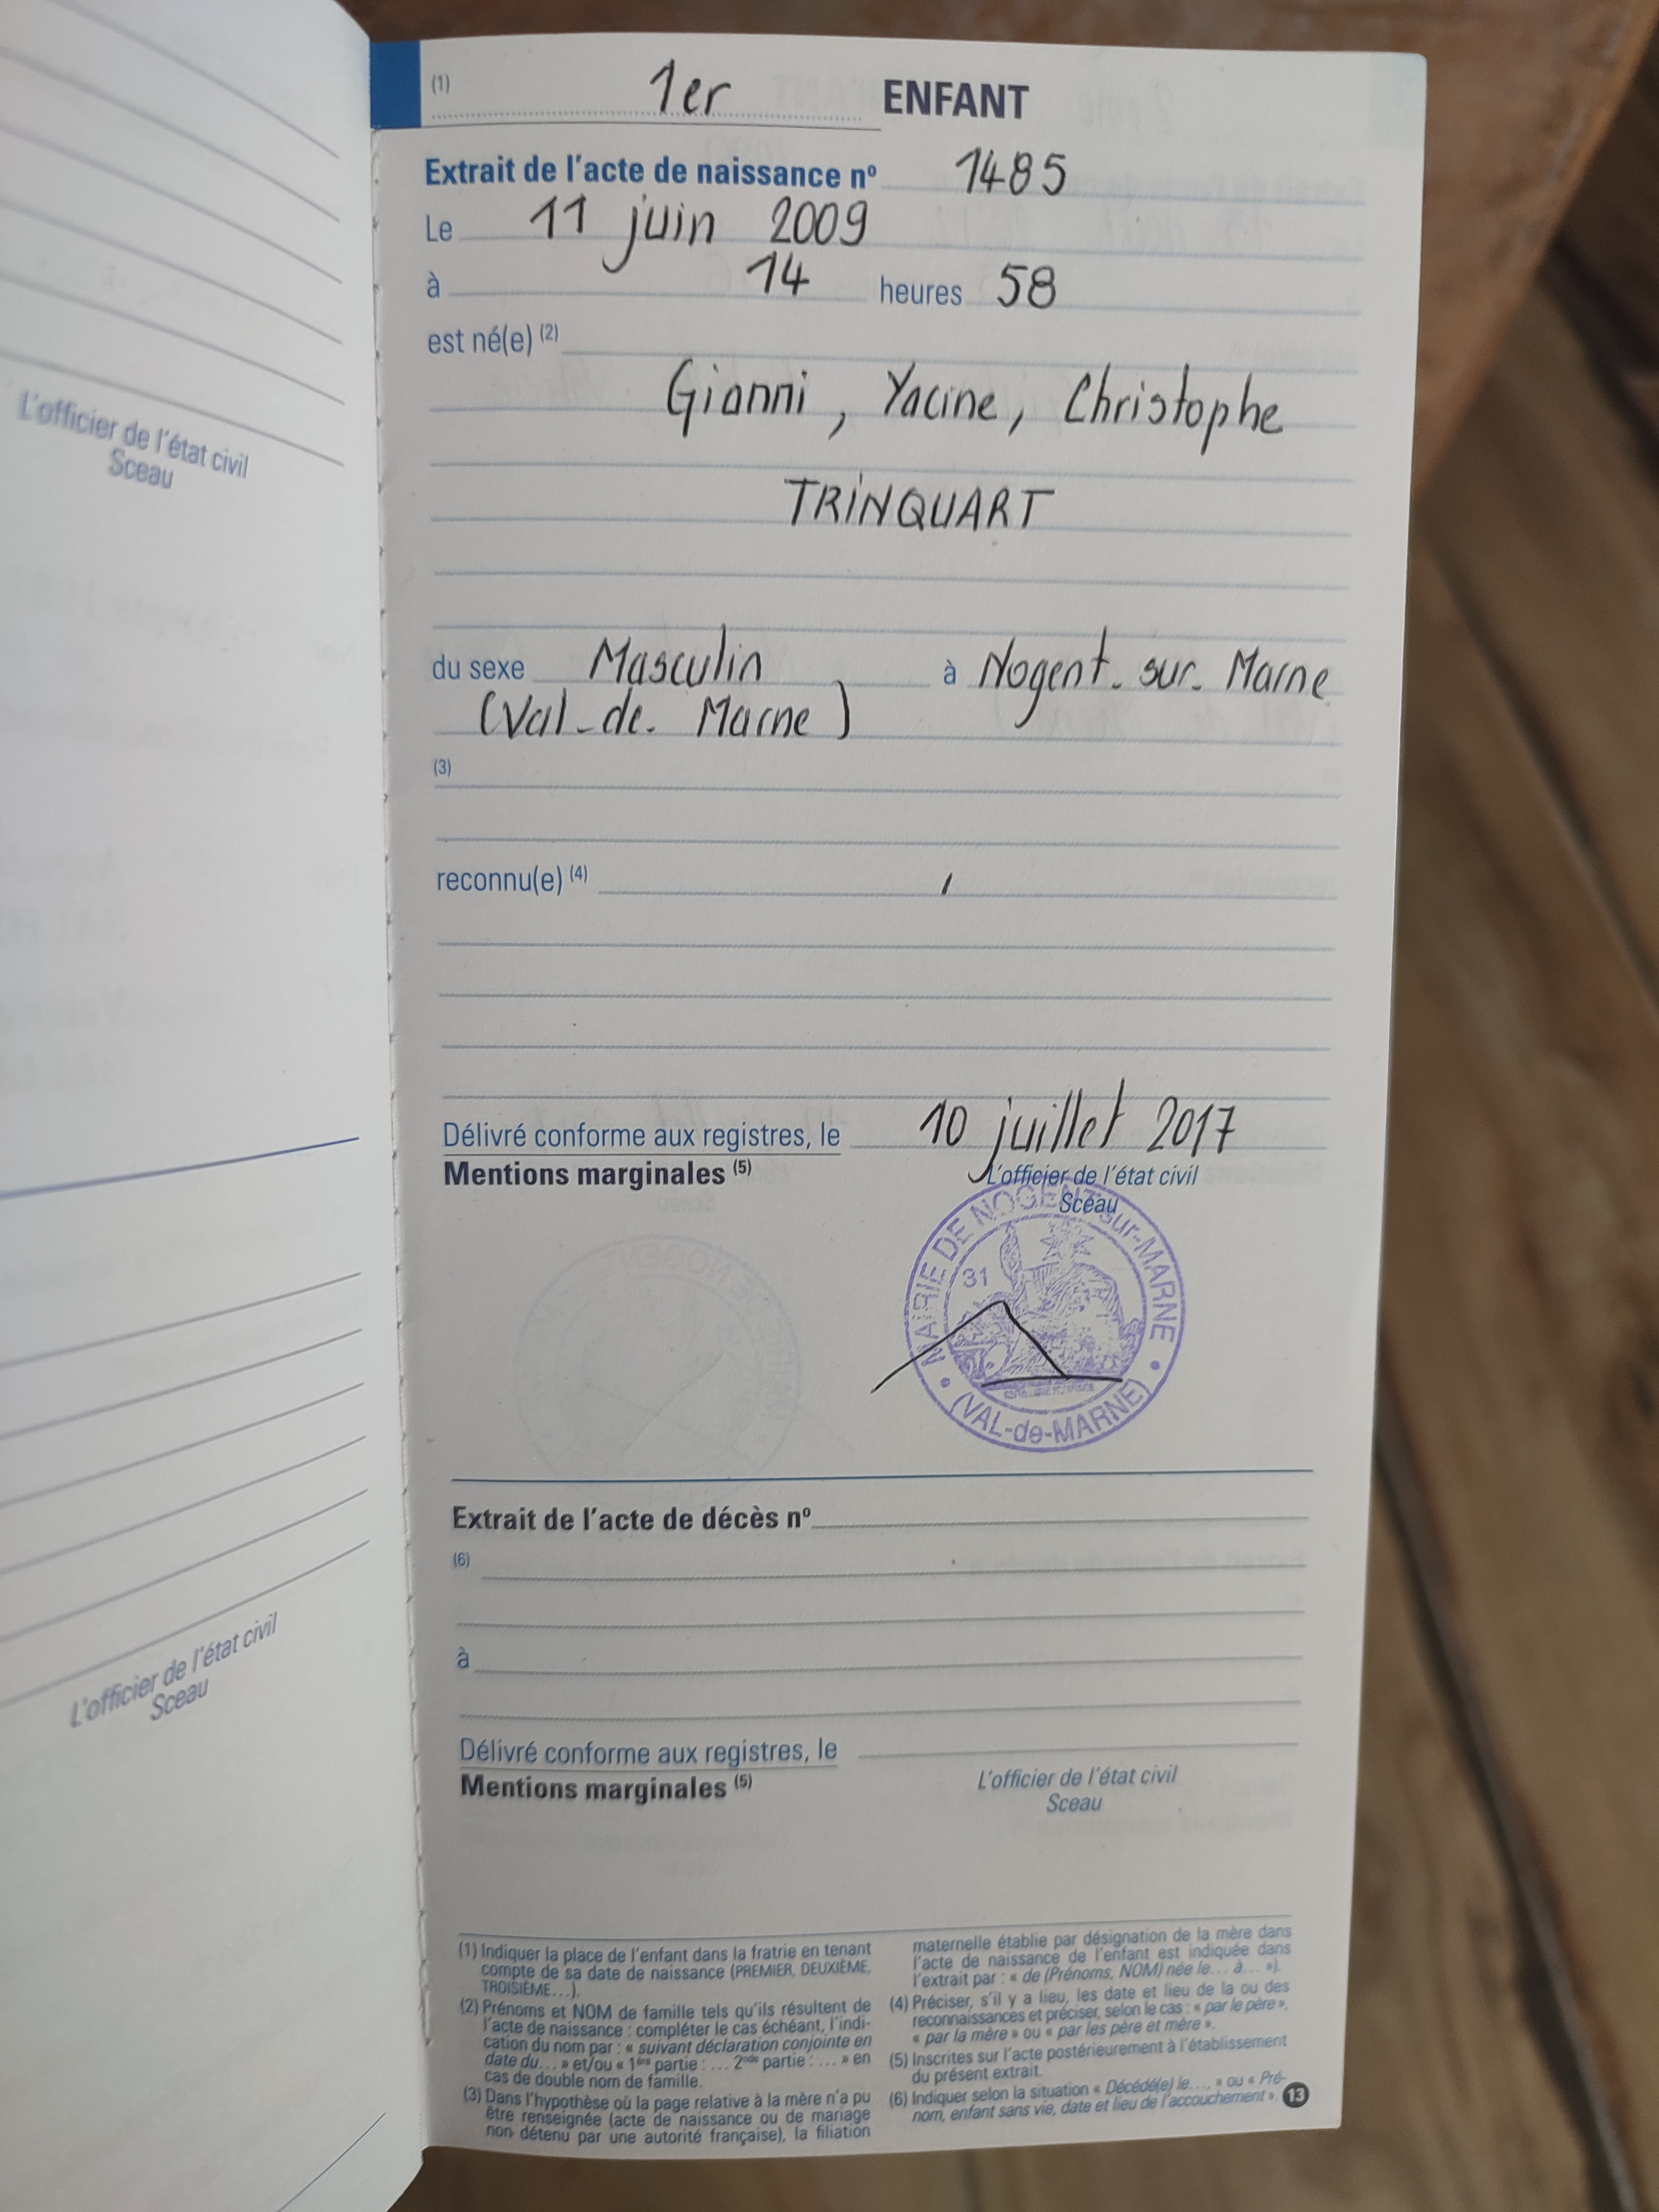 L'officier de l'état civil
Sceau
L'officier de l'état civil
Sceau
(1) 1er ENFANT
Extrait de l'acte de naissance nº 1485
Le 11 juin 2009
à 14 heures 58
est né(e) (2)
Gianni, Yacine, Christophe
TRINQUART
du sexe Masculin à Nogent-sur-Marne
(Val-de-Marne)
(3)
reconnu(e) (4) /
Délivré conforme aux registres, le 10 juillet 2017
Mentions marginales (5)
L'officier de l'état civil
Sceau
MAIRIE DE NOGENT-sur-MARNE
31
(VAL-de-MARNE)
Extrait de l'acte de décès nº
(6)
à
Délivré conforme aux registres, le
Mentions marginales (5)
L'officier de l'état civil
Sceau
(1) Indiquer la place de l'enfant dans la fratrie en tenant
compte de sa date de naissance (PREMIER, DEUXIÈME,
TROISIÈME...).
(2) Prénoms et NOM de famille tels qu'ils résultent de
l'acte de naissance : compléter le cas échéant, l'indi-
cation du nom par : « suivant déclaration conjointe en
date du... » et/ou « 1ère partie : ... 2nde partie : ... » en
cas de double nom de famille.
(3) Dans l'hypothèse où la page relative à la mère n'a pu
être renseignée (acte de naissance ou de mariage
non détenu par une autorité française), la filiation
maternelle établie par désignation de la mère dans
l'acte de naissance de l'enfant est indiquée dans
l'extrait par : « de (Prénoms, NOM) née le... à... »).
(4) Préciser, s'il y a lieu, les date et lieu de la ou des
reconnaissances et préciser, selon le cas : « par le père »,
« par la mère » ou « par les père et mère ».
(5) Inscrites sur l'acte postérieurement à l'établissement
du présent extrait.
(6) Indiquer selon la situation « Décédé(e) le..., » ou « Pré-
nom, enfant sans vie, date et lieu de l'accouchement ».
13